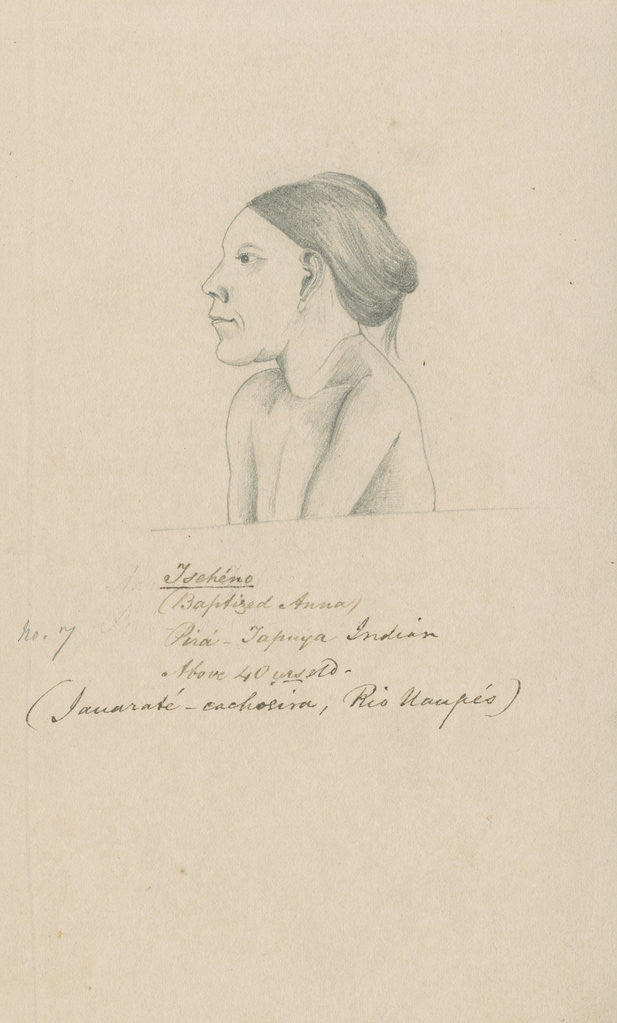 Ischéno
(Baptized Anna)
No. 7
Pirá - Tapuya Indian
Above 40 yrs old.
(Jauaraté - cachoeira, Rio Uaupés)